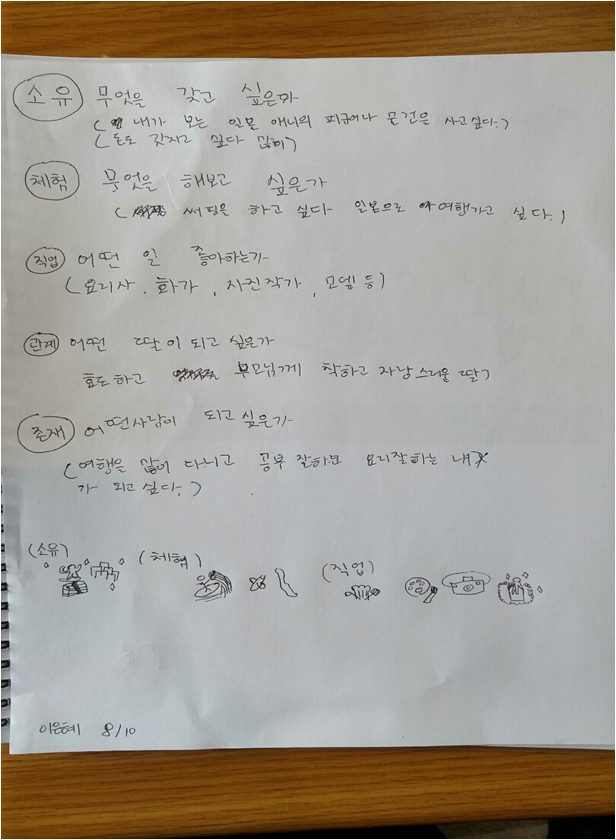 소유 무엇을 갖고 싶은가
(내가 보는 일본 애니의 피규어나 물건은 사고싶다.)
(돈도 갖자고 싶다 많이)
체험 무엇을 해보고 싶은가
( 써핑을 하고 싶다 일본으로 여행가고 싶다.)
직업 어떤 일 좋아하는가
(요리사, 화가, 사진작가, 모델 등)
관계 어떤 딸이 되고 싶은가
효도하고 부모님께 착하고 자랑스러울 딸
존재 어떤사람이 되고 싶은가
(여행을 많이 다니고 공부 잘하면 요리잘하는 내
가 되고싶다.)
(소유) (체험) (직업)
8/10